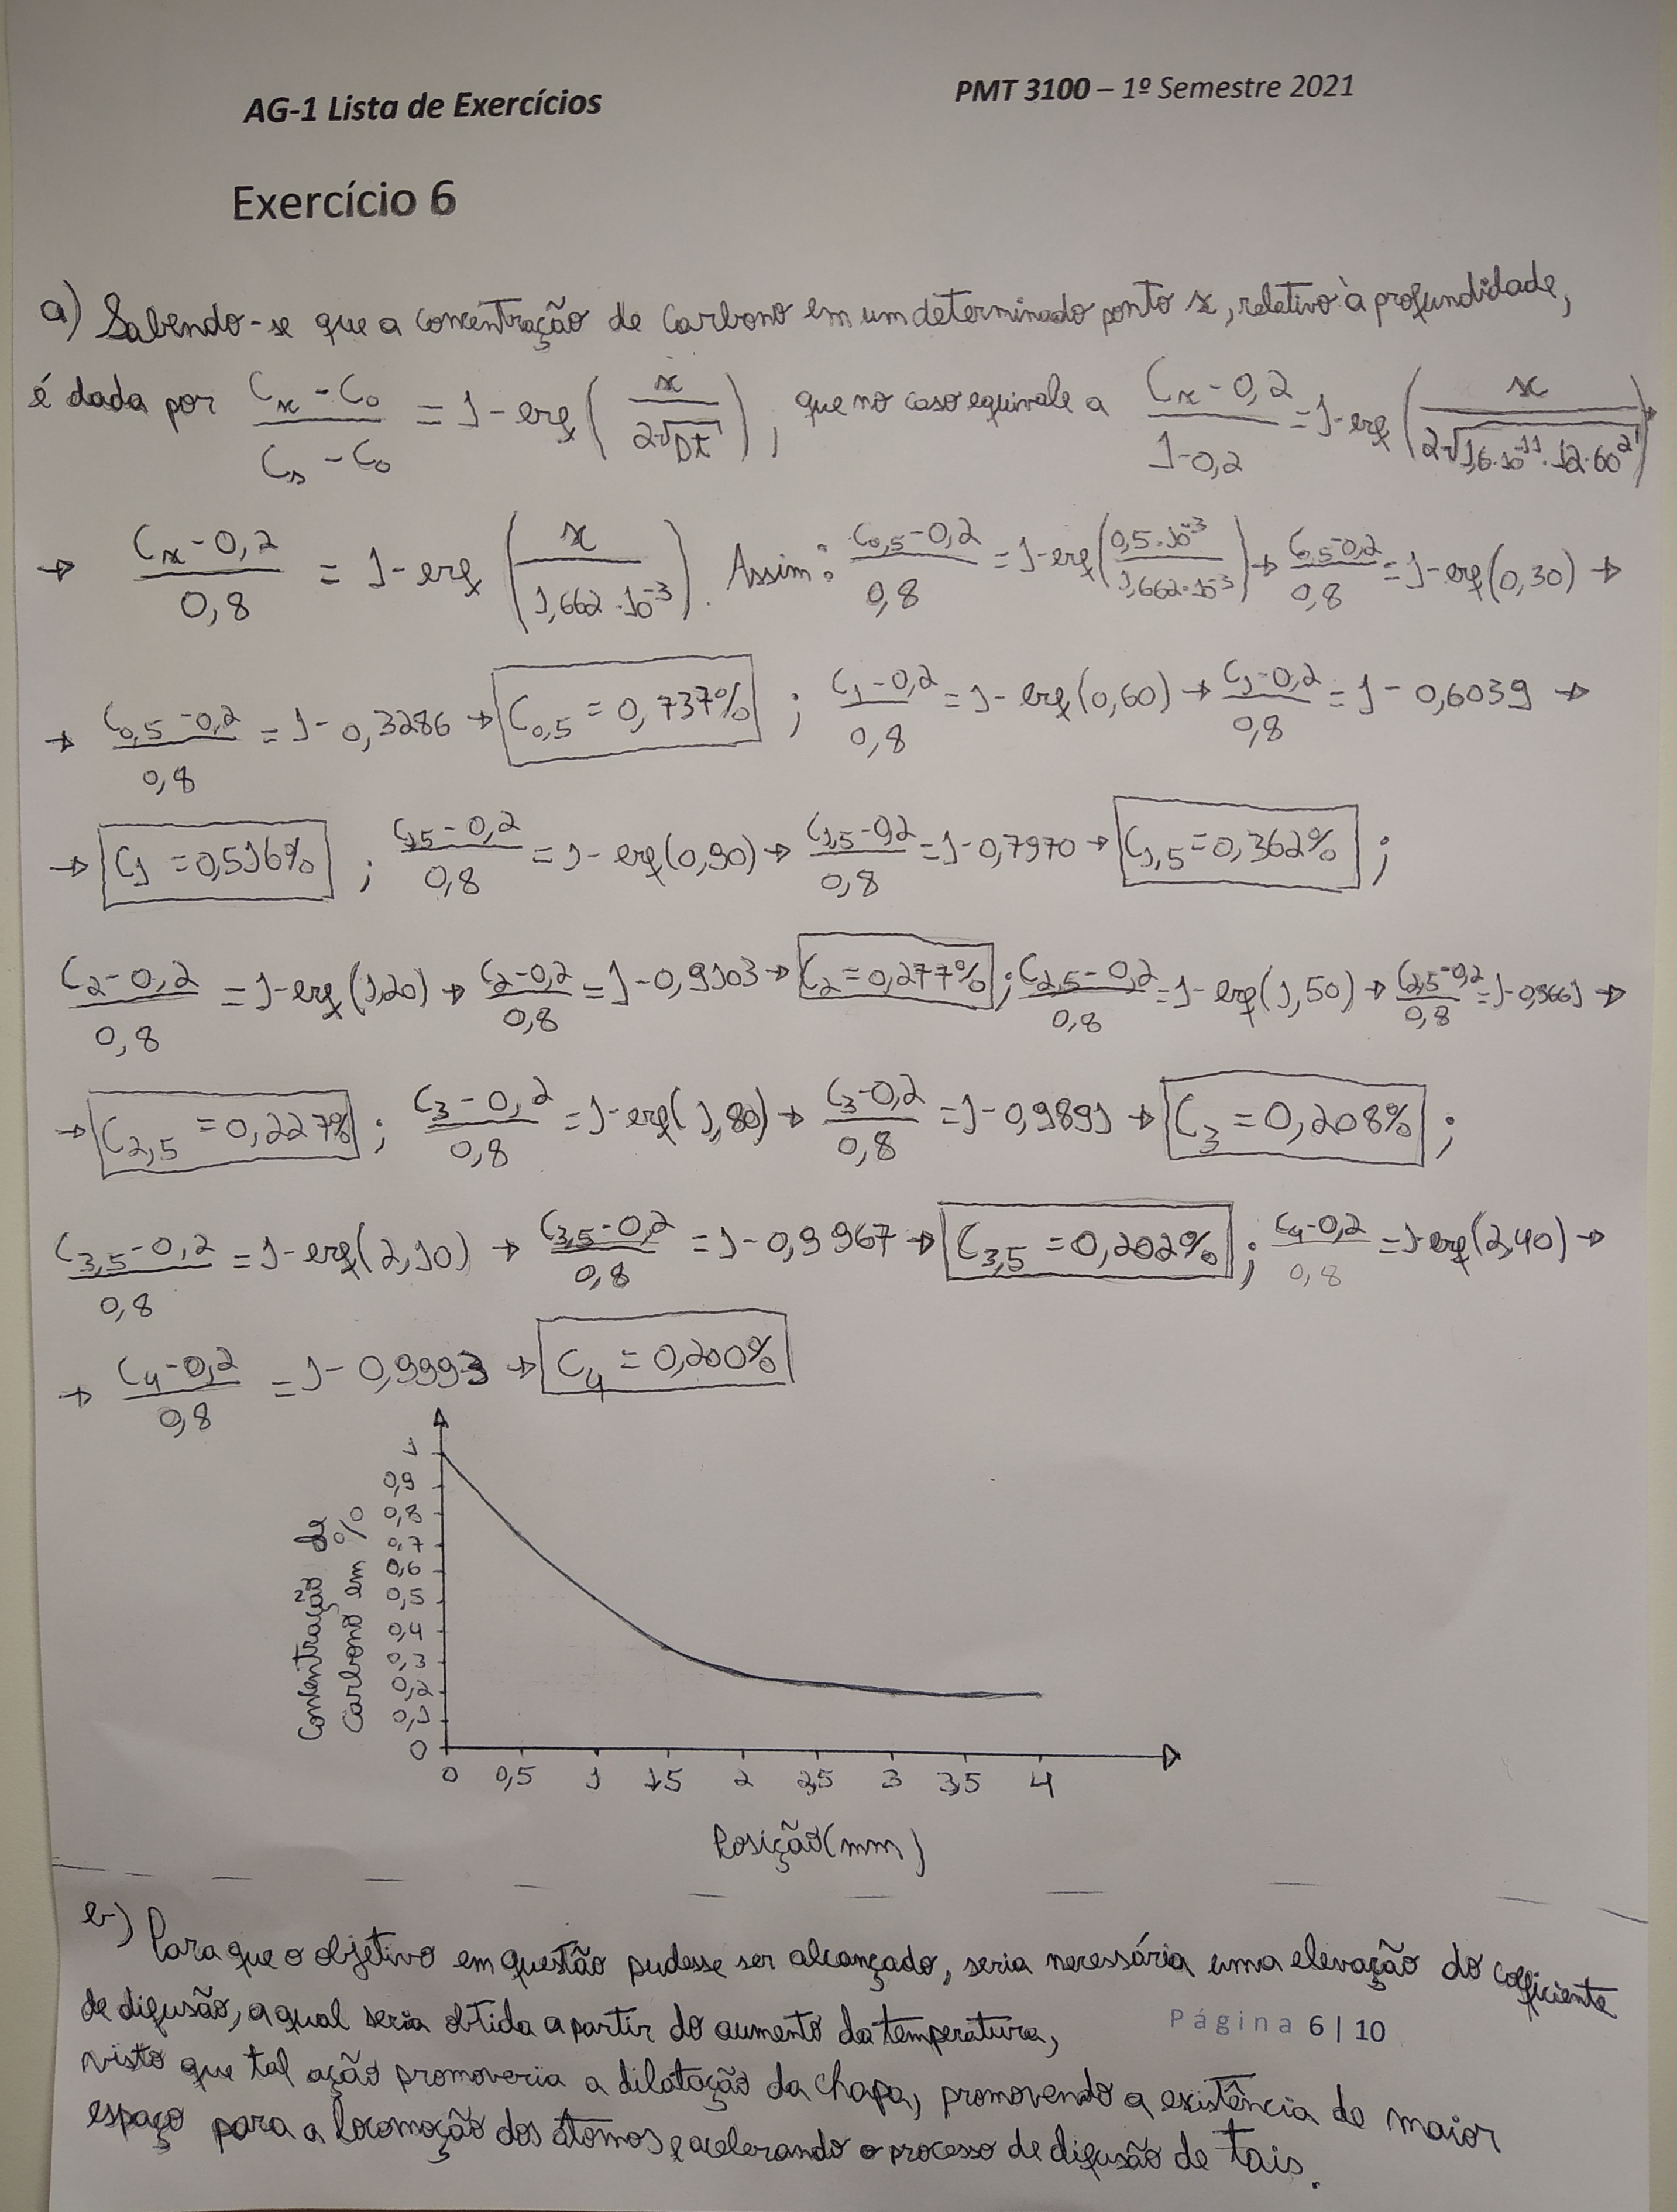 AG-1 Lista de Exercícios PMT 3100 – 1º Semestre 2021
Exercício 6
a) Sabendo-se que a concentração de carbono em um determinado ponto x, relativo à profundidade,
é dada por (Cx - C0)/(Cs - C0) = 1 - erf(x/(2√Dt)), que no caso equivale a (Cx - 0,2)/(1 - 0,2) = 1 - erf(x/(2√(1,6·10^-11·12·60^2))) →
→ (Cx - 0,2)/0,8 = 1 - erf(x/(1,662·10^-3)). Assim: (C0,5 - 0,2)/0,8 = 1 - erf((0,5·10^-3)/(1,662·10^-3)) → (C0,5 - 0,2)/0,8 = 1 - erf(0,30) →
→ (C0,5 - 0,2)/0,8 = 1 - 0,3286 → C0,5 = 0,737% ; (C1 - 0,2)/0,8 = 1 - erf(0,60) → (C1 - 0,2)/0,8 = 1 - 0,6039 →
→ C1 = 0,516% ; (C1,5 - 0,2)/0,8 = 1 - erf(0,90) → (C1,5 - 0,2)/0,8 = 1 - 0,7970 → C1,5 = 0,362% ;
(C2 - 0,2)/0,8 = 1 - erf(1,20) → (C2 - 0,2)/0,8 = 1 - 0,9103 → C2 = 0,277% ; (C2,5 - 0,2)/0,8 = 1 - erf(1,50) → (C2,5 - 0,2)/0,8 = 1 - 0,9661 →
→ C2,5 = 0,227% ; (C3 - 0,2)/0,8 = 1 - erf(1,80) → (C3 - 0,2)/0,8 = 1 - 0,9891 → C3 = 0,208% ;
(C3,5 - 0,2)/0,8 = 1 - erf(2,10) → (C3,5 - 0,2)/0,8 = 1 - 0,9967 → C3,5 = 0,202% ; (C4 - 0,2)/0,8 = 1 - erf(2,40) →
→ (C4 - 0,2)/0,8 = 1 - 0,9993 → C4 = 0,200%
Concentração de
Carbono em %
1
0,9
0,8
0,7
0,6
0,5
0,4
0,3
0,2
0,1
0
0 0,5 1 1,5 2 2,5 3 3,5 4
Posição (mm)
b) Para que o objetivo em questão pudesse ser alcançado, seria necessária uma elevação do coeficiente
de difusão, a qual seria obtida a partir do aumento da temperatura,
Página 6 | 10
visto que tal ação promoveria a dilatação da chapa, promovendo a existência de maior
espaço para a locomoção dos átomos e acelerando o processo de difusão de tais.